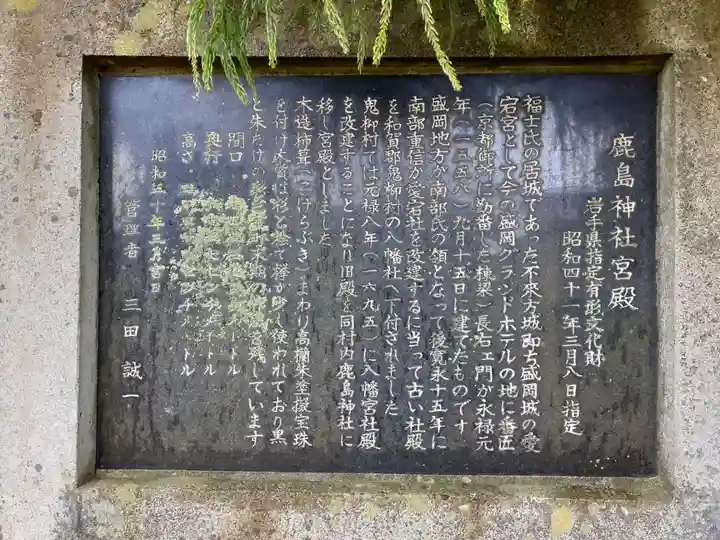 鹿島神社宮殿
岩手県指定有形文化財
昭和四十一年三月八日指定
福士氏の居城であった不来方城即ち盛岡城の愛
宕宮として今の盛岡グランドホテルの地に番匠
(京都御所に勤番した棟梁)長右ェ門が永禄元
年(一五五八)九月十五日に建てたものです
盛岡地方が南部氏の領となって後寛永十五年に
南部重信が愛宕社を改建するに当って古い社殿
を和賀郡鬼柳村の八幡社へ下付されました
鬼柳村では元禄八年(一六九五)に八幡宮社殿
を改建することになり旧殿を同村内鹿島神社に
移し宮殿としました
木造柿葺(こけらぶき)まわり高欄朱塗擬宝珠
を付け木質は杉と桧で欅が少し使われており黒
と朱だけの町末期の残しています
間口 ートル
奥行 センチメートル
高さ センチメートル
昭和五十年三月吉日
管理者 三田誠一